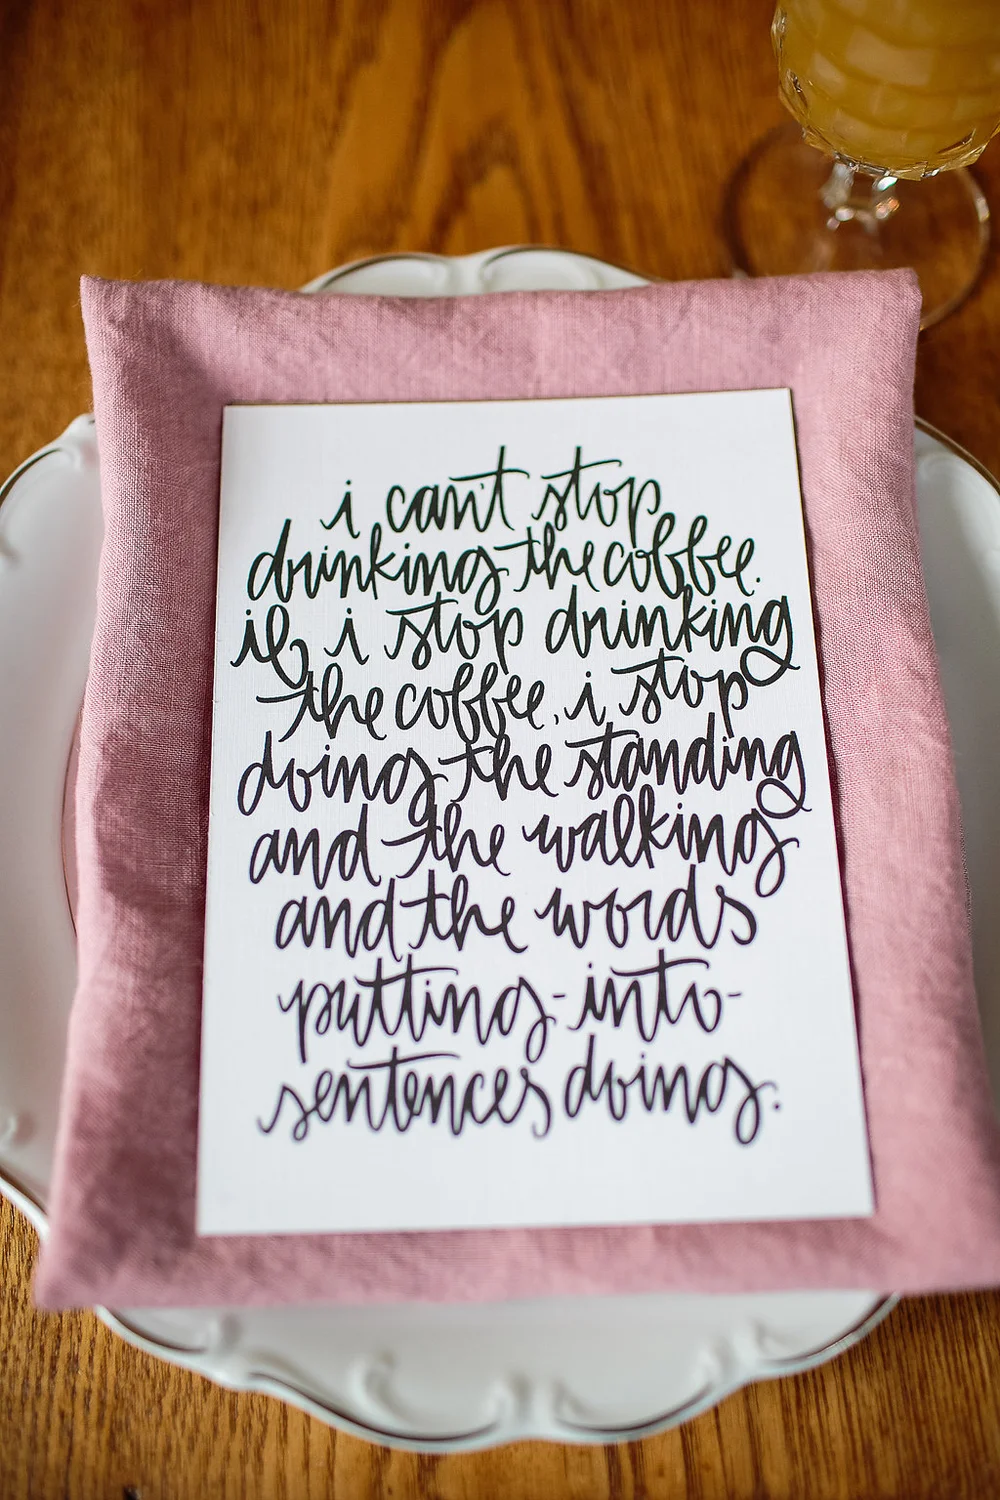 i can't stop
drinking the coffee.
if i stop drinking
the coffee, i stop
doing the standing
and the walking
and the words
putting-into-
sentences doing.